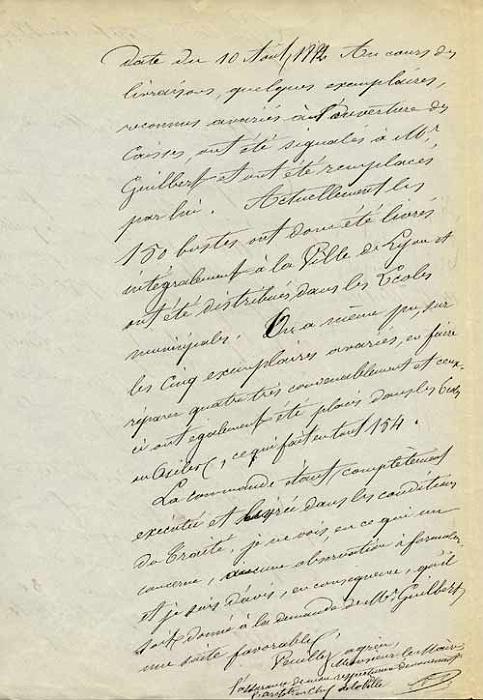 date du 10 Août 18 Au cours des
livraisons, quelques exemplaires,
reconnus avariés à l'ouverture des
Caisses, ont été signalés à Mr.
Guilbert et ont été remplacés
par lui. Actuellement les
150 bustes ont donc été livrés
intégralement à la Ville de Lyon et
ont été distribués dans les Ecoles
municipales. On a même pu, sur
les cinq exemplaires avariés, en faire
réparer quatre très convenablement et ceux-
ci ont également été placés dans les Ecoles
ou Asiles, ce qui fait en tout 154.
La commande étant complètement
exécutée et livrée dans les conditions
du Traité, je ne vois, en ce qui me
concerne, aucune observation à formuler
et je suis d'avis, en conséquence, qu'il
soit donné à la demande de Mr. Guilbert
une suite favorable.
Veuillez agréer,
Monsieur le Maire,
l'assurance de mon respectueux dévouement
L'architecte en Chef de la Ville